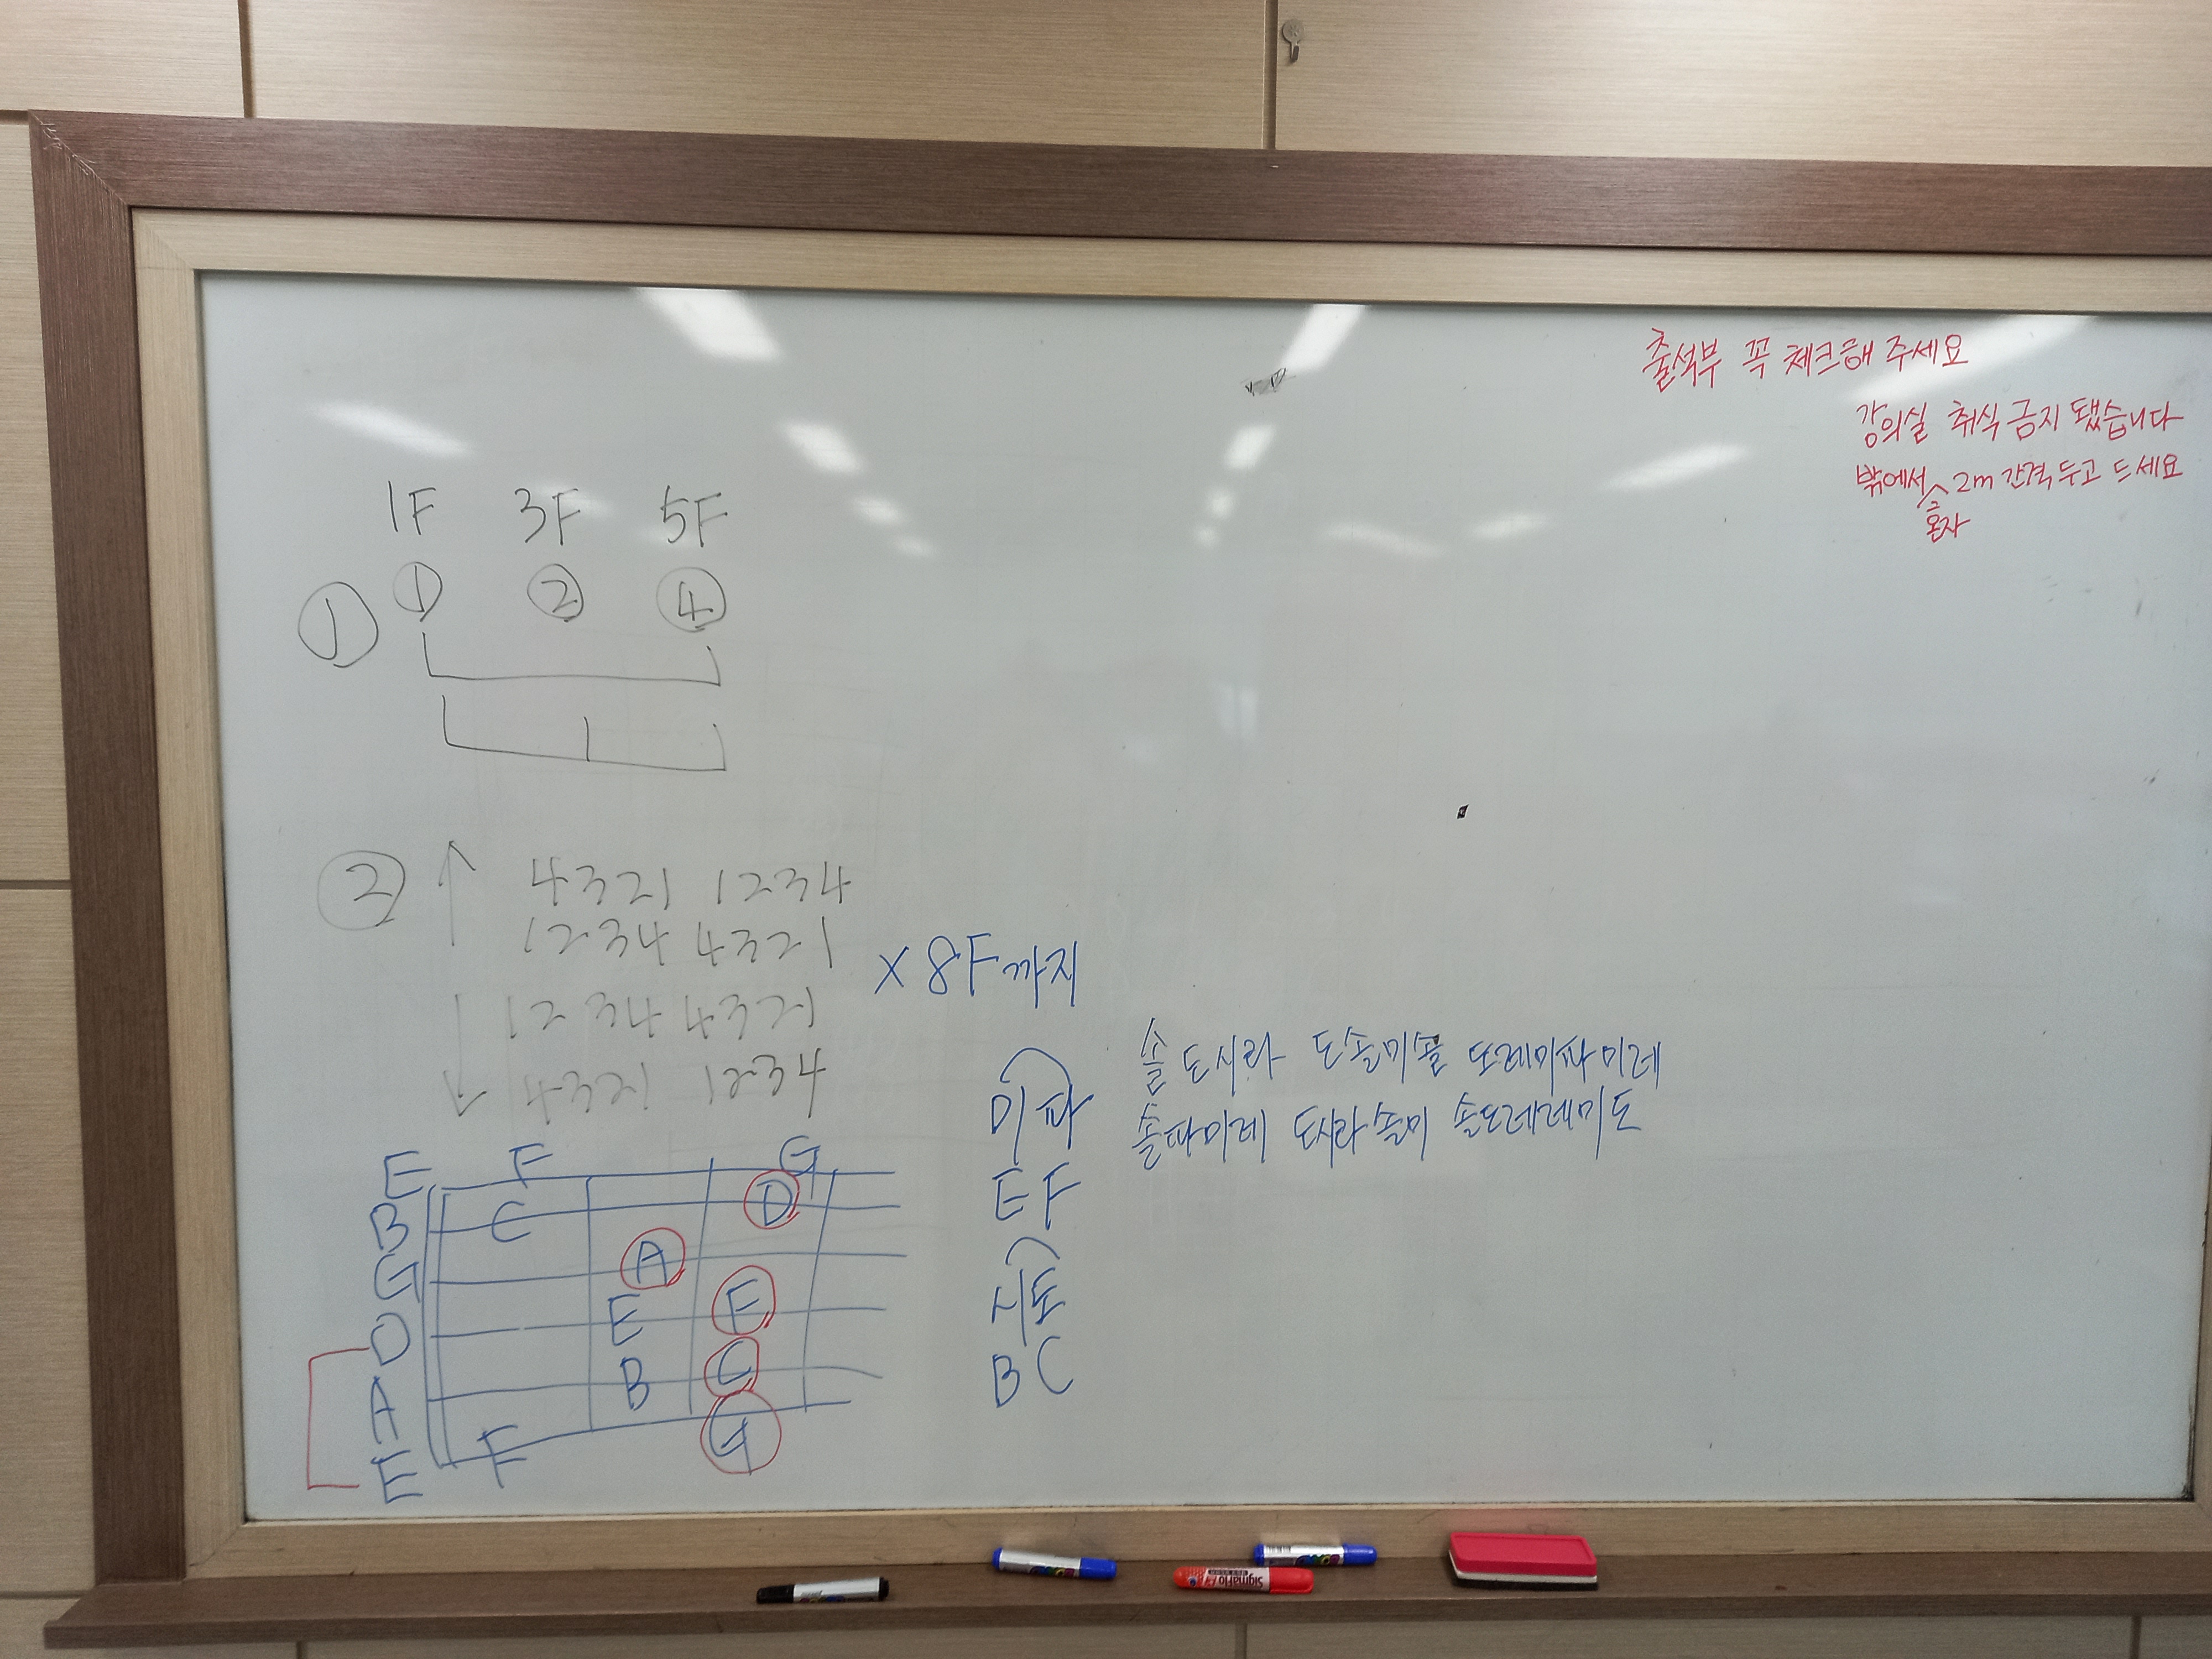 출석부 꼭 체크해 주세요
강의실 취식 금지 됐습니다
밖에서 혼자 2m 간격 두고 드세요
1F 3F 5F
① ① ② ④
② 4321 1234
1234 4321
1234 4321
4321 1234
× 8F까지
미파
EF
시도
BC
솔도시라 도솔미솔 도레미파미레
솔파미레 도시라솔미 솔도레레미도
E F G
B C D
G A
D E F
A B C
E F G
SigmaFlo